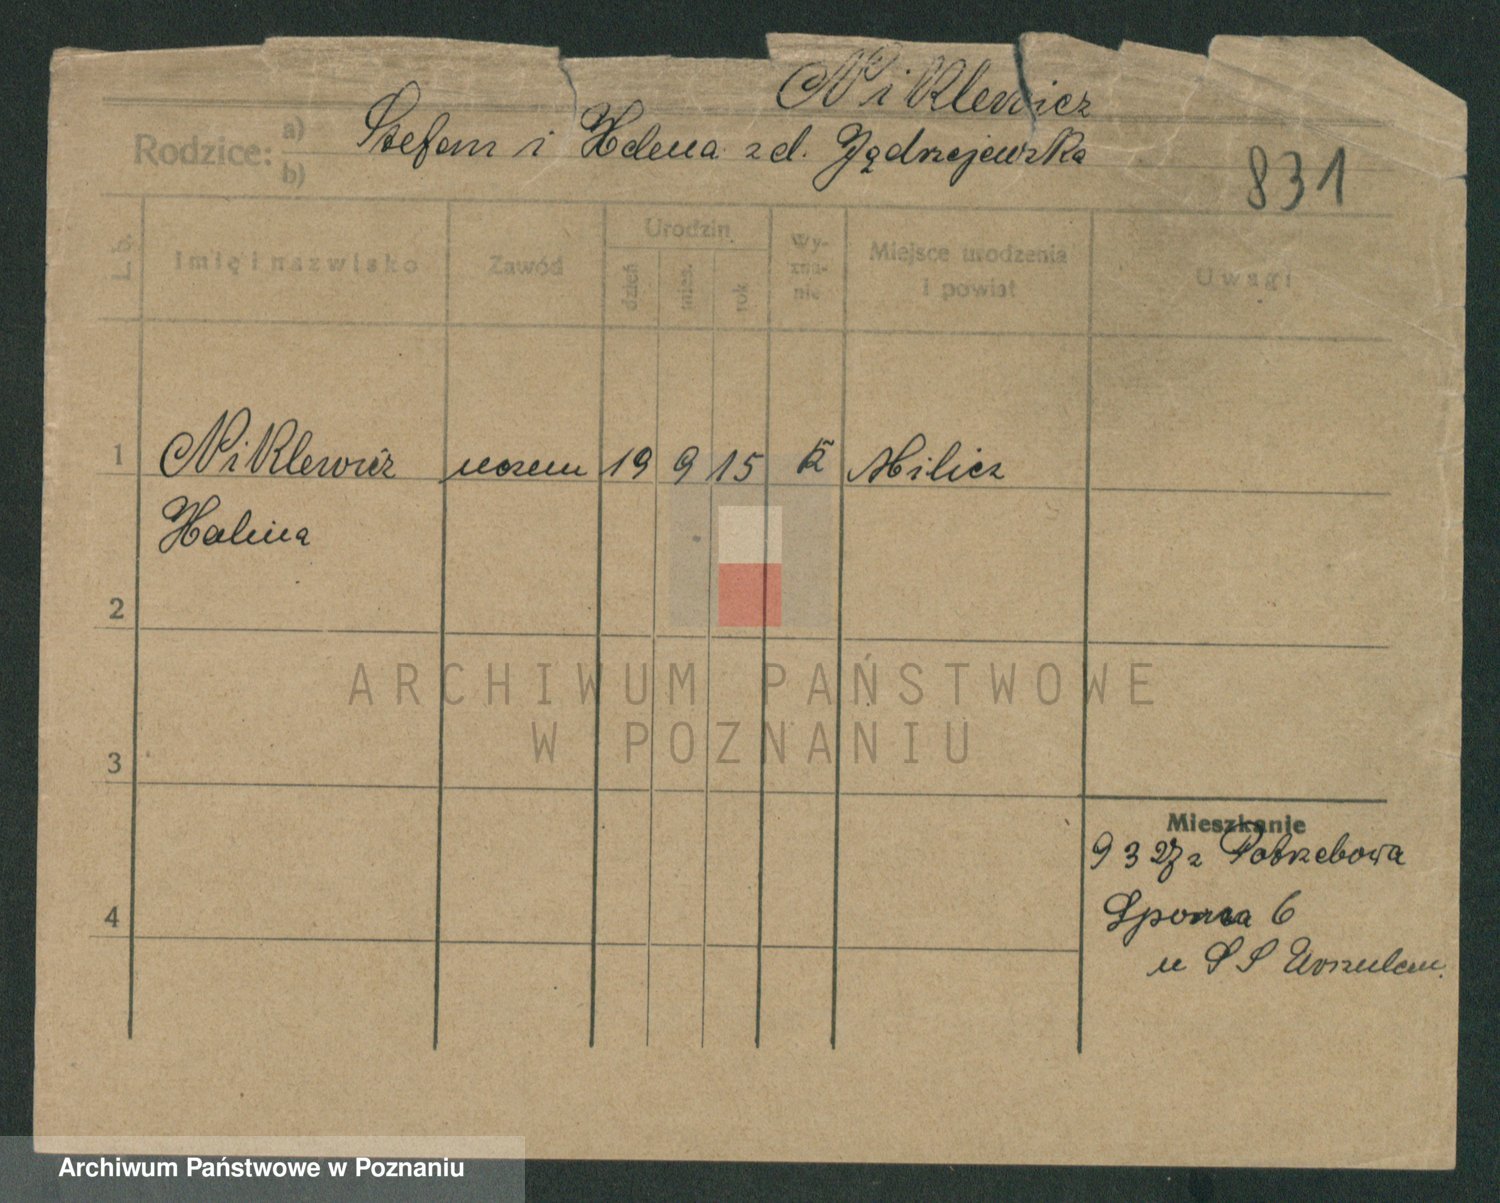 Niklewicz
Rodzice: a) b) Stefan i Helena zd. Jędrzejewska
831
L. b. Imię i nazwisko Zawód Urodzin dzień mies. rok Wy-zna-nie Miejsce urodzenia i powiat Uwagi
1 Niklewicz uczen 19 9 15 Milicz
Halina
2
ARCHIWUM PAŃSTWOWE
W POZNANIU
3
Mieszkanie
9 3 z Potrzebowa
4 Sporna 6
u S S Urszulan.
Archiwum Państwowe w Poznaniu